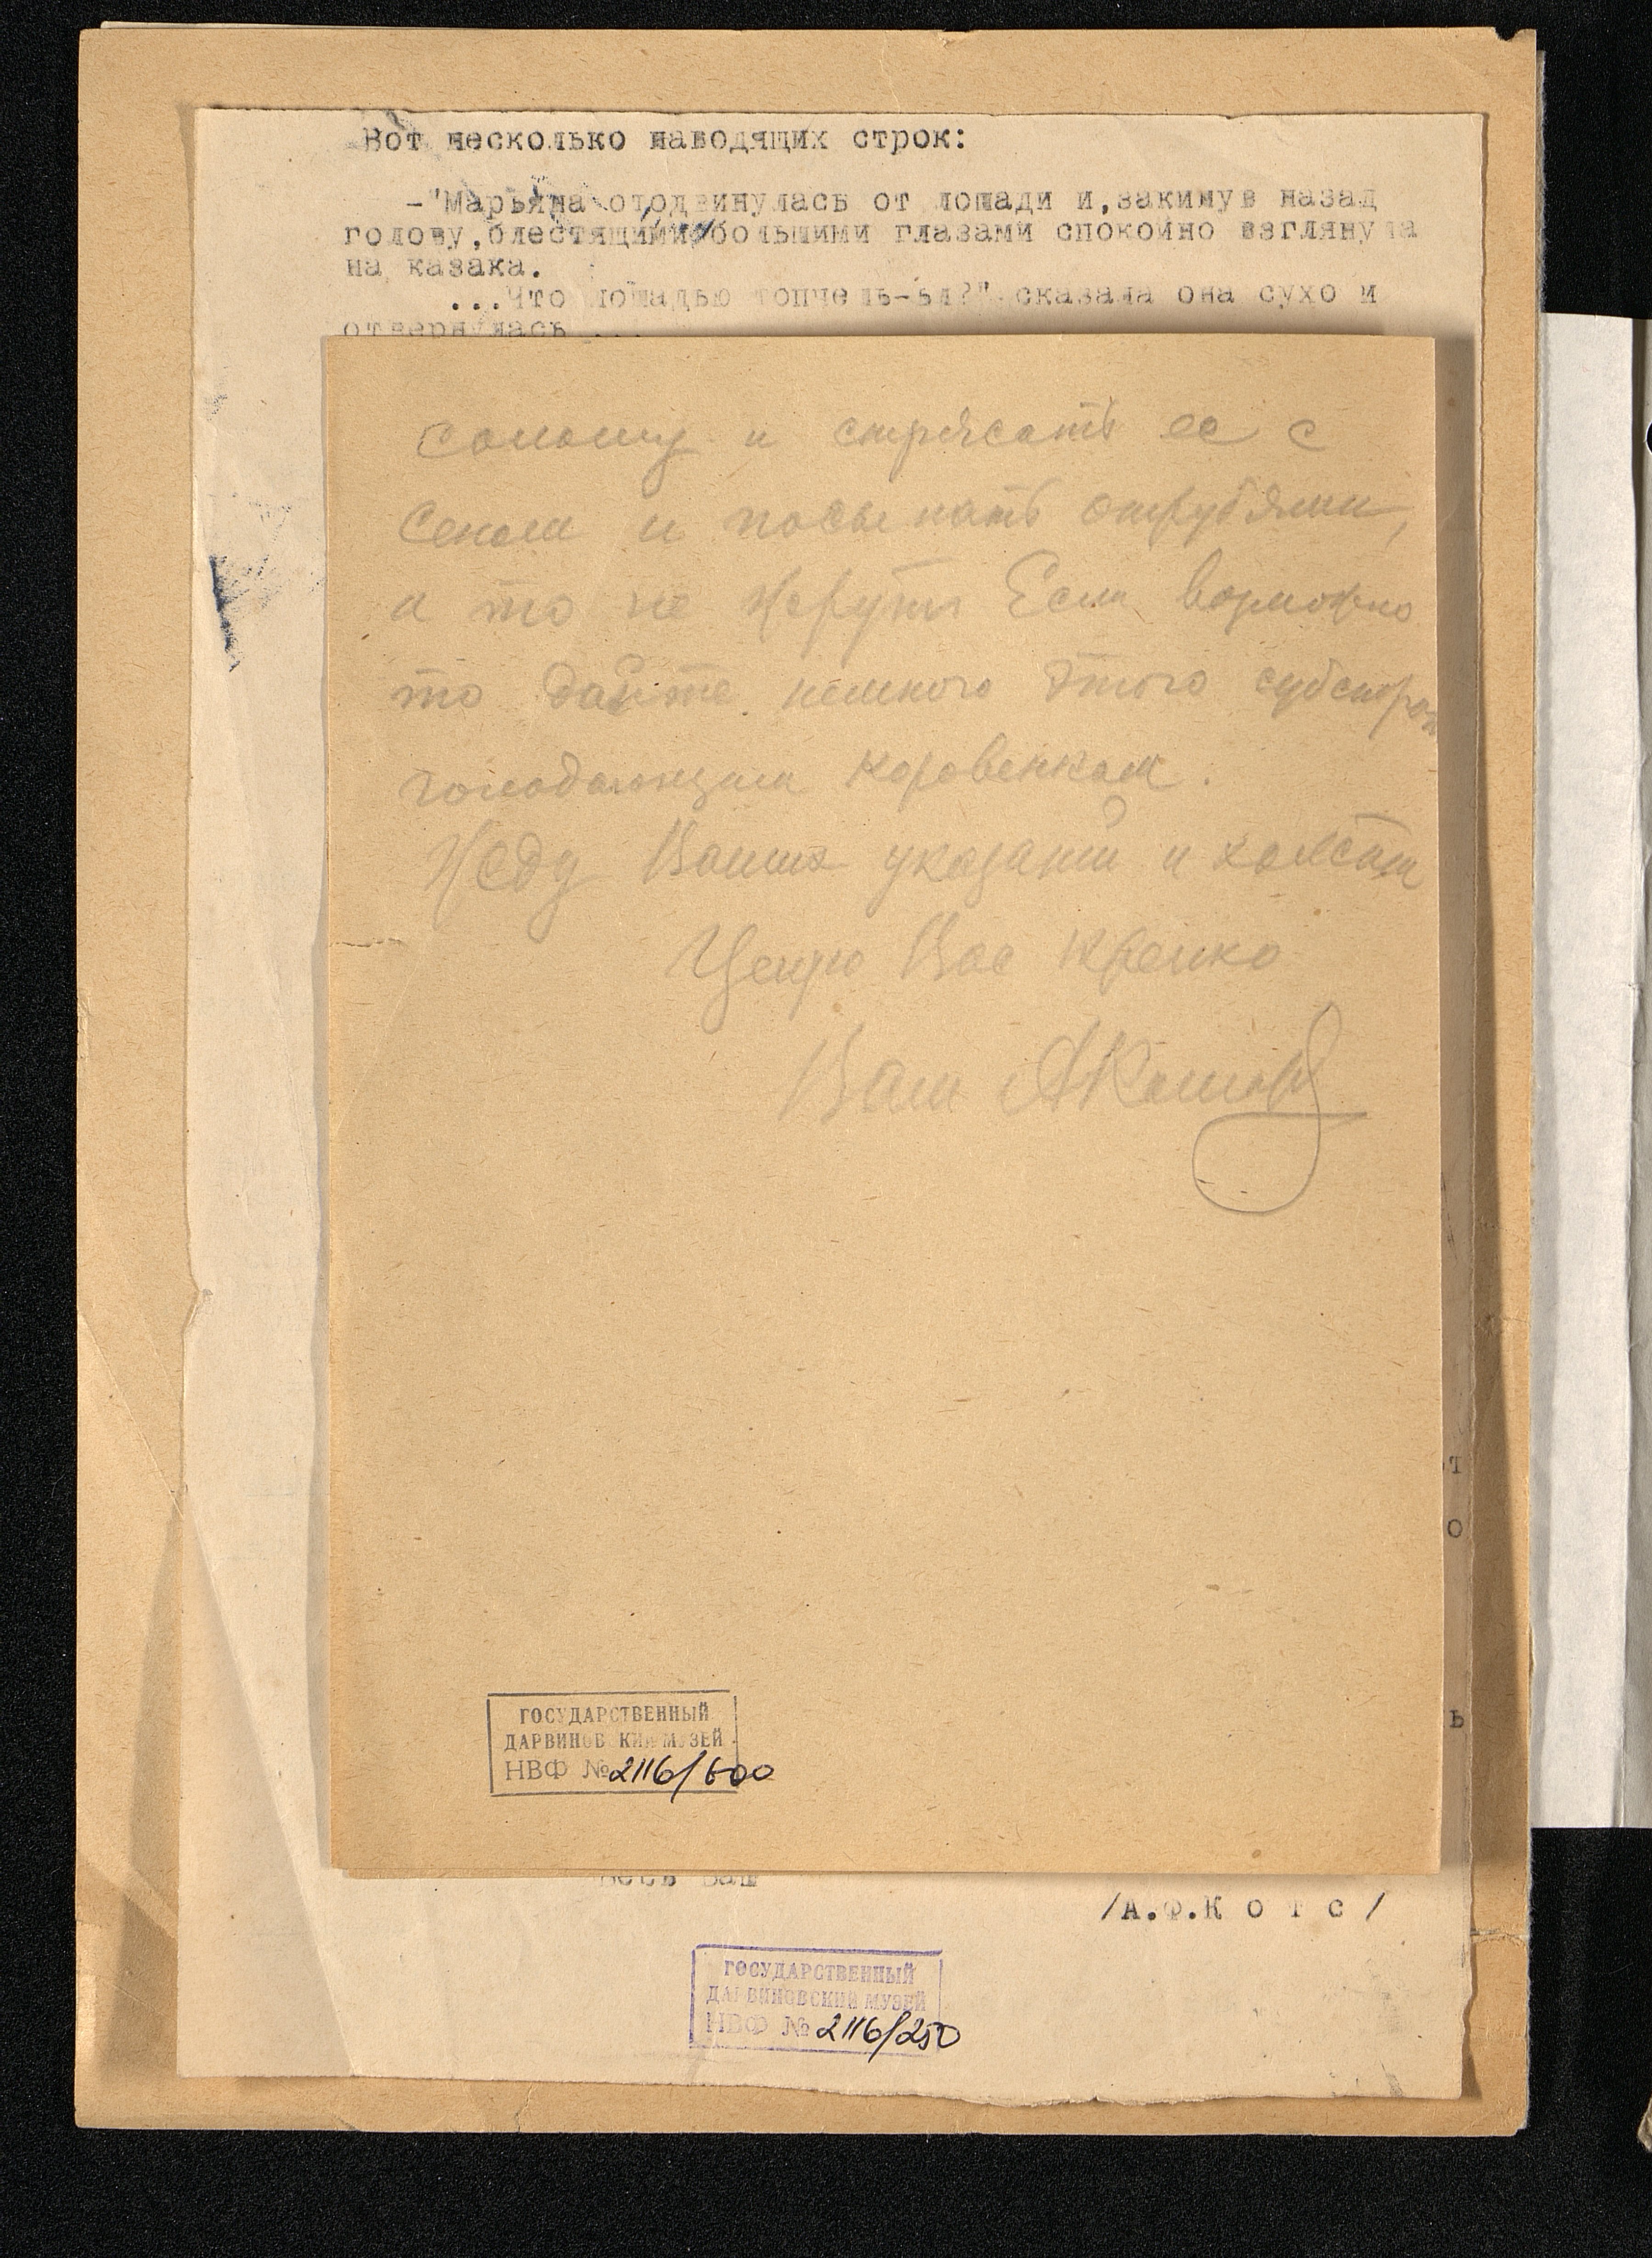 Вот несколько наводящих строк:
-"Марьяна отодвинулась от лошади и, закинув назад
голову, блестящими большими глазами спокойно взглянула
на казака.
...Что лошадью топчешь-ья?" сказала она сухо и
отвернулась ...
солому и стрясать ее с
сеном и посыпать отрубями,
а то не жерут Если возможно
то дайте немного этого
голодающим коровенкам.
Жду Ваших указаний и
Целую Вас крепко
Ваш
т
о
ь
ГОСУДАРСТВЕННЫЙ
ДАРВИНОВСКИЙ МУЗЕЙ
НВФ № 2116/600
Весь Ваш
/А.Ф.К о т с /
ГОСУДАРСТВЕННЫЙ
ДАРВИНОВСКИЙ МУЗЕЙ
НВФ № 2116/250